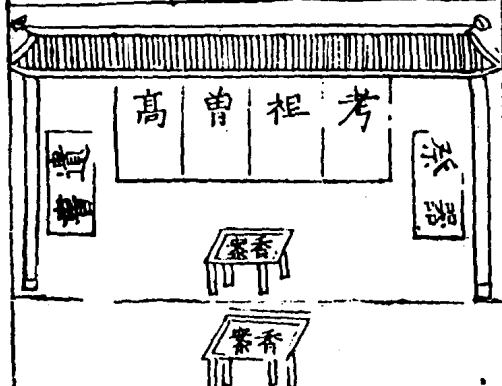 高
曾
祖
考
遺書
祭器
香案
香案